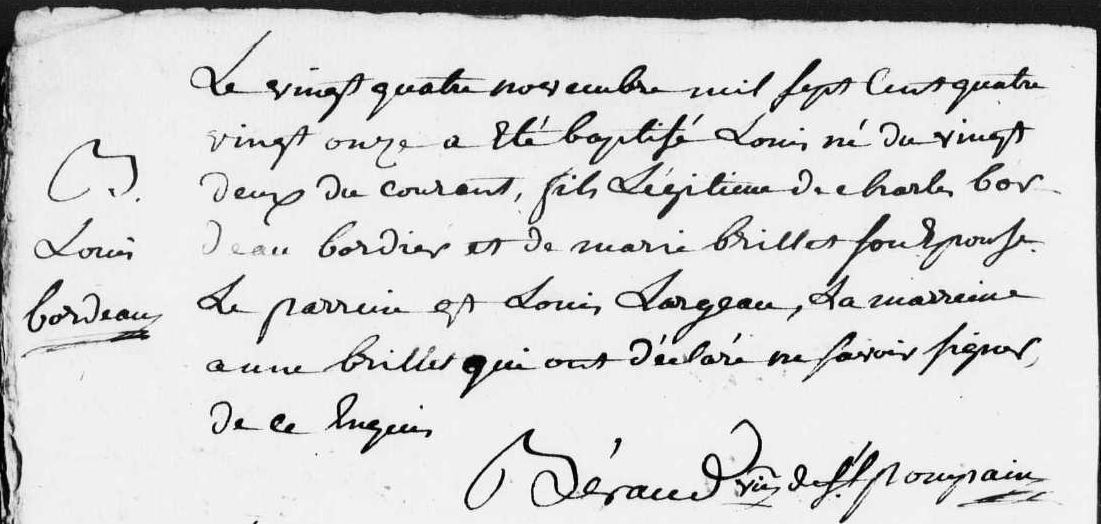 Le vingt quatre novembre mil sept Cent quatre
vingt onze a Eté baptisé Louis né du vingt
B.
deux du courant, fils Légitime de charles bor-
Louis
deau bordier et de marie brillet son Epouse.
bordeau
Le parrein est Louis Largeau, La marreine
anne brillet qui ont déclaré ne savoir signer,
de ce Enquis
Béraud vic. de St pompain